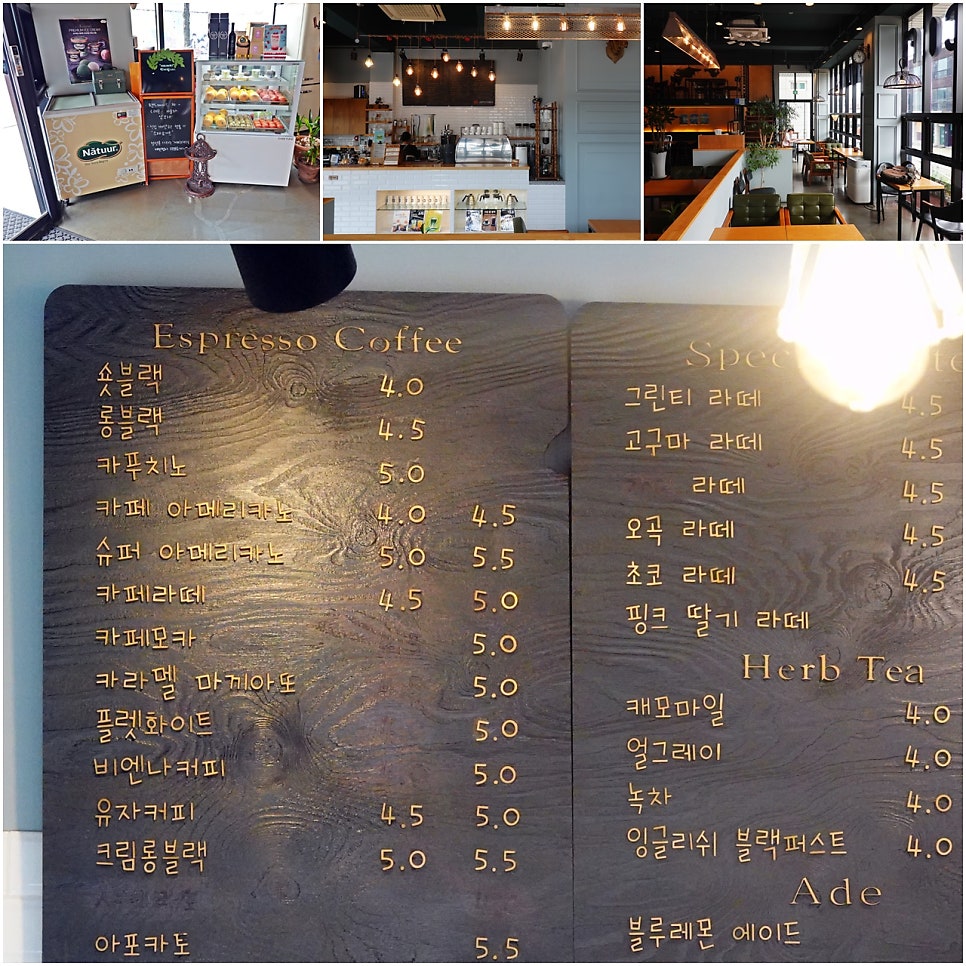 Nătuur.
Espresso Coffee
숏블랙 4.0
롱블랙 4.5
카푸치노 5.0
카페 아메리카노 4.0 4.5
슈퍼 아메리카노 5.0 5.5
카페라떼 4.5 5.0
카페모카 5.0
카라멜 마끼아또 5.0
플렛화이트 5.0
비엔나커피 5.0
유자커피 4.5 5.0
크림롱블랙 5.0 5.5
아포카토 5.5
그린티 라떼 4.5
고구마 라떼 4.5
라떼 4.5
오곡 라떼 4.5
초코 라떼 4.5
핑크 딸기 라떼
Herb Tea
캐모마일 4.0
얼그레이 4.0
녹차 4.0
잉글리쉬 블랙퍼스트 4.0
Ade
블루레몬 에이드